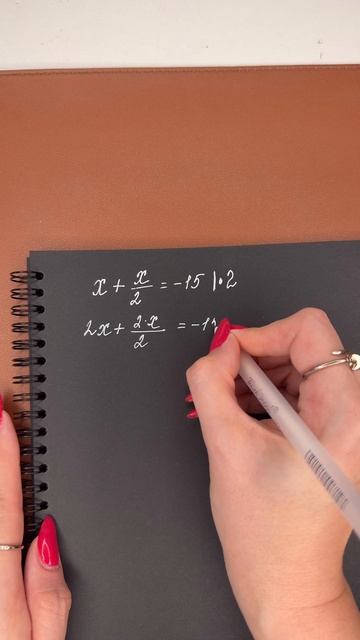 x + x/2 = -15 | · 2
2x + 2·x/2 = -1